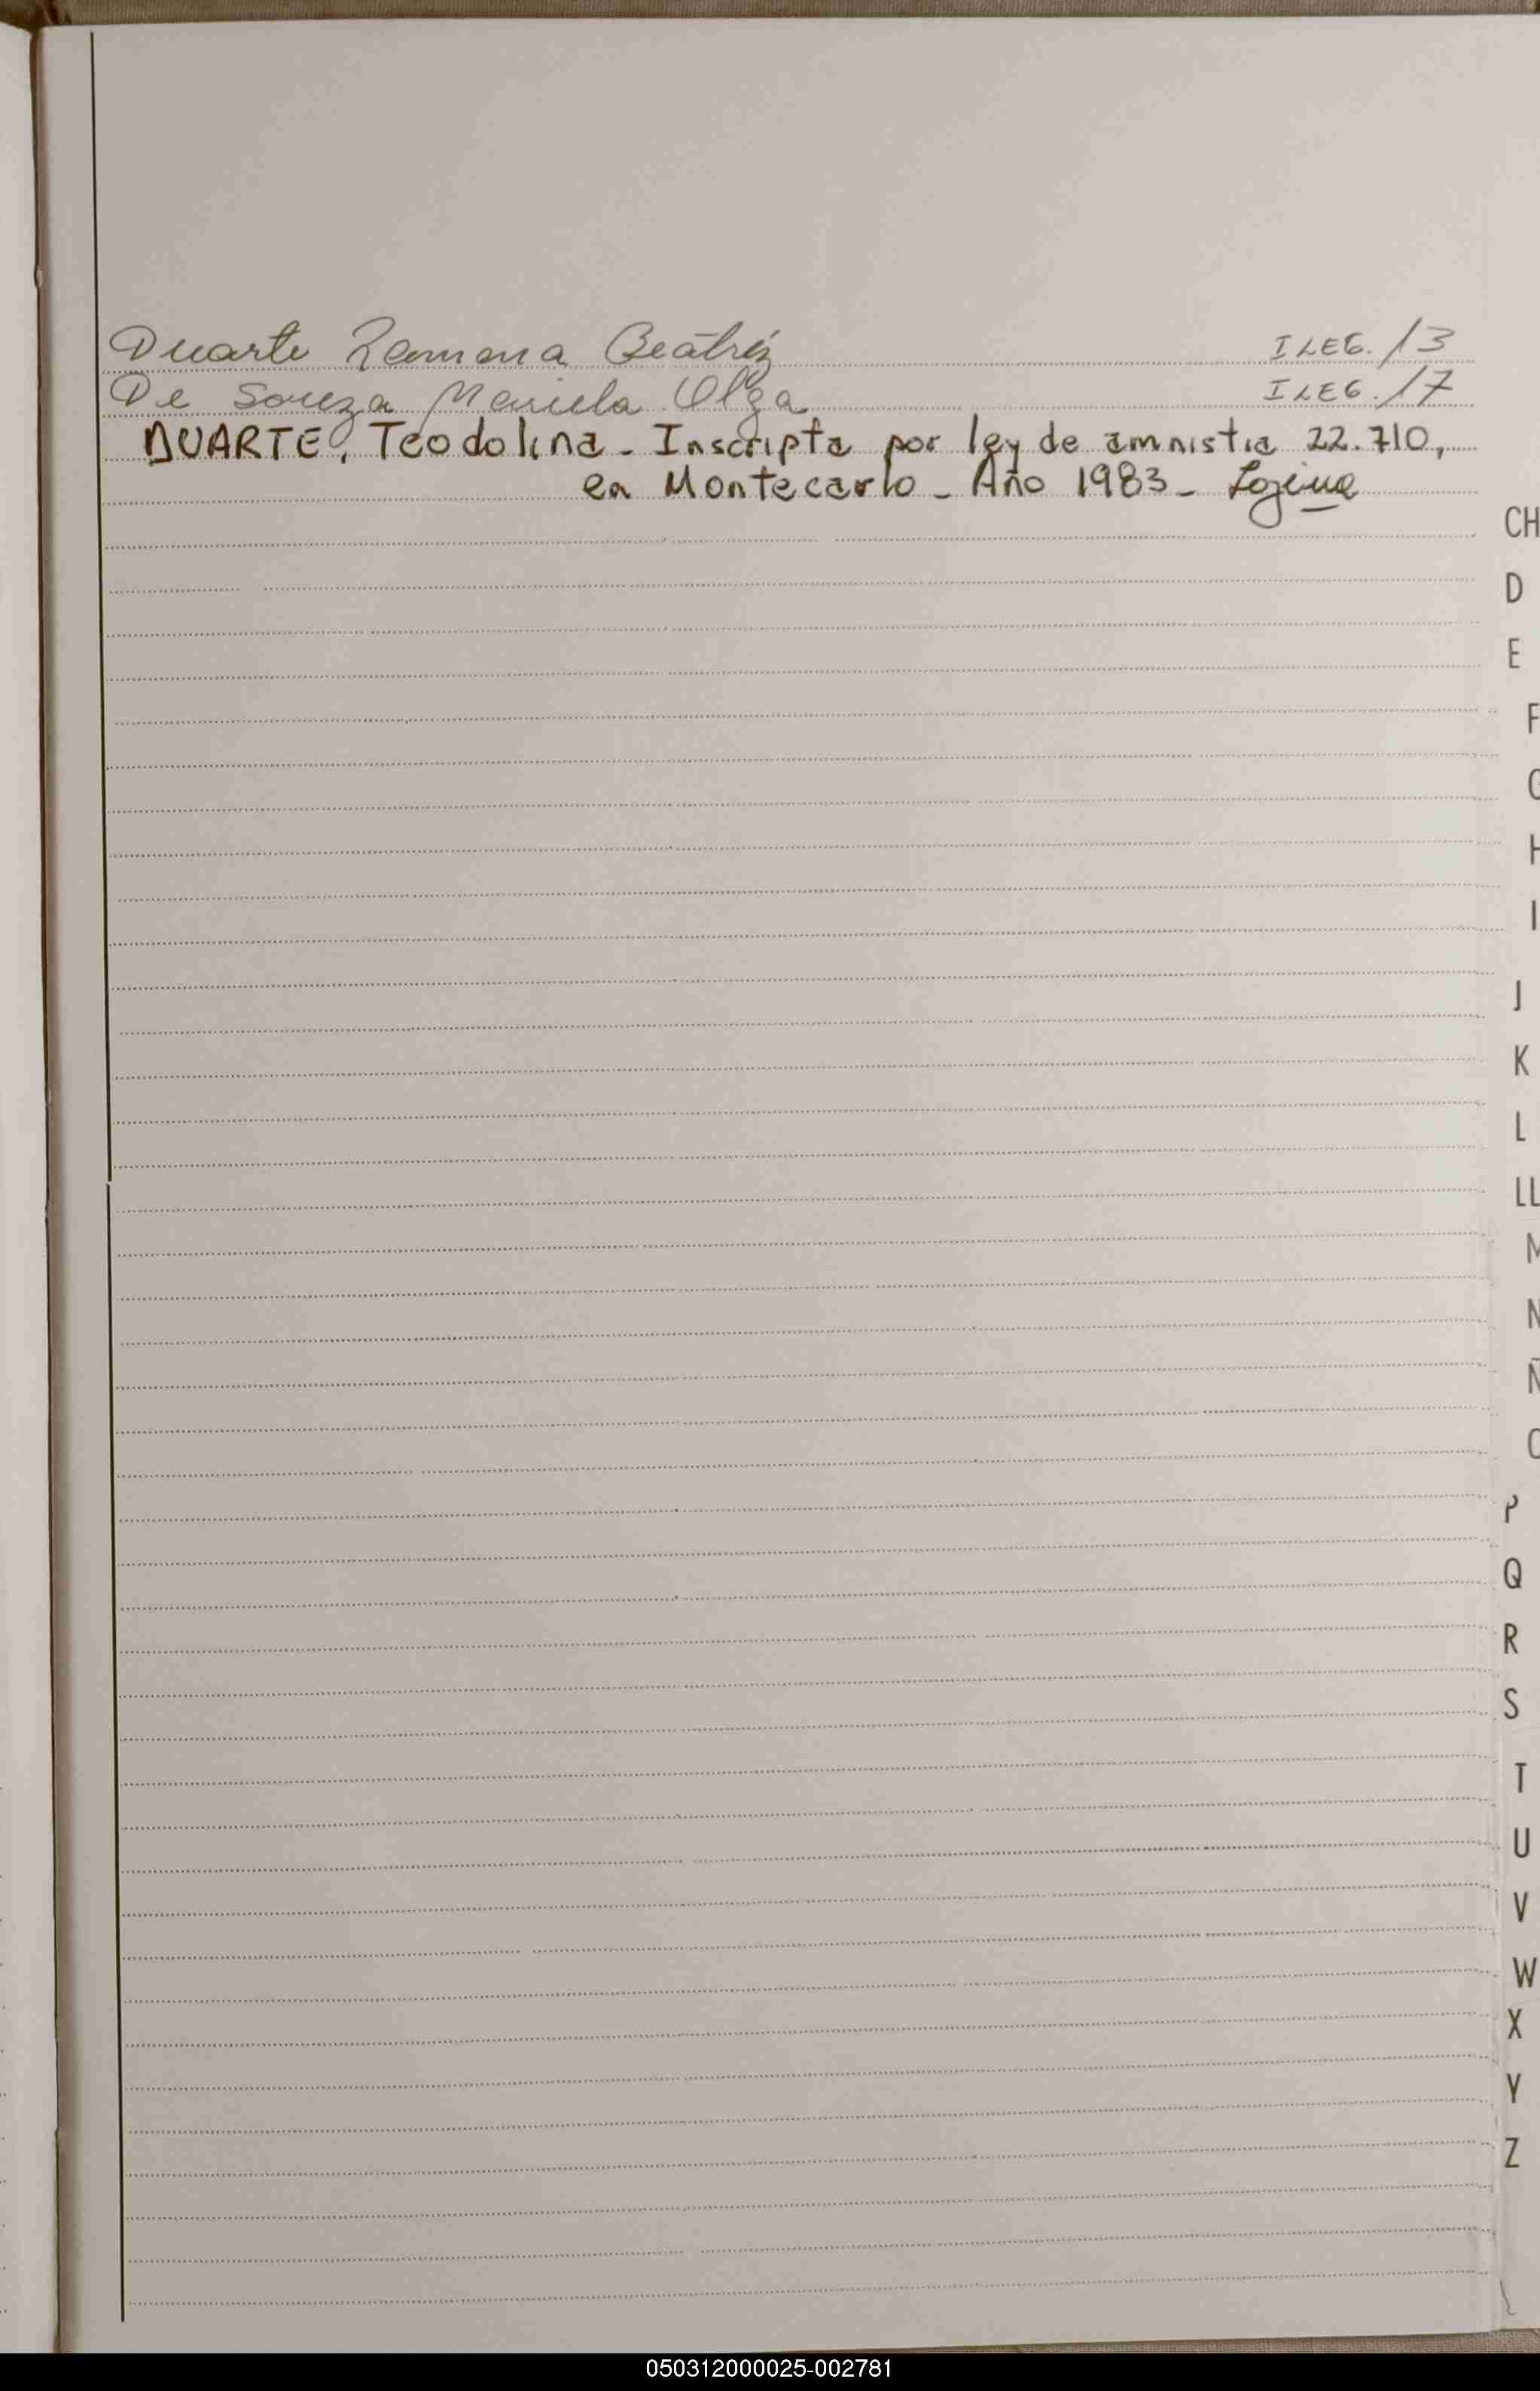 Duarte Ramona Beatriz ILEG. 13
De Souza Mariela Olga ILEG. 17
DUARTE, Teodolina - Inscripta por ley de amnistia 22.710,
en Montecarlo - Año 1983 -
CH
D
E
F
G
H
I
J
K
L
LL
M
N
Ñ
O
P
Q
R
S
T
U
V
W
X
Y
Z
050312000025-002781